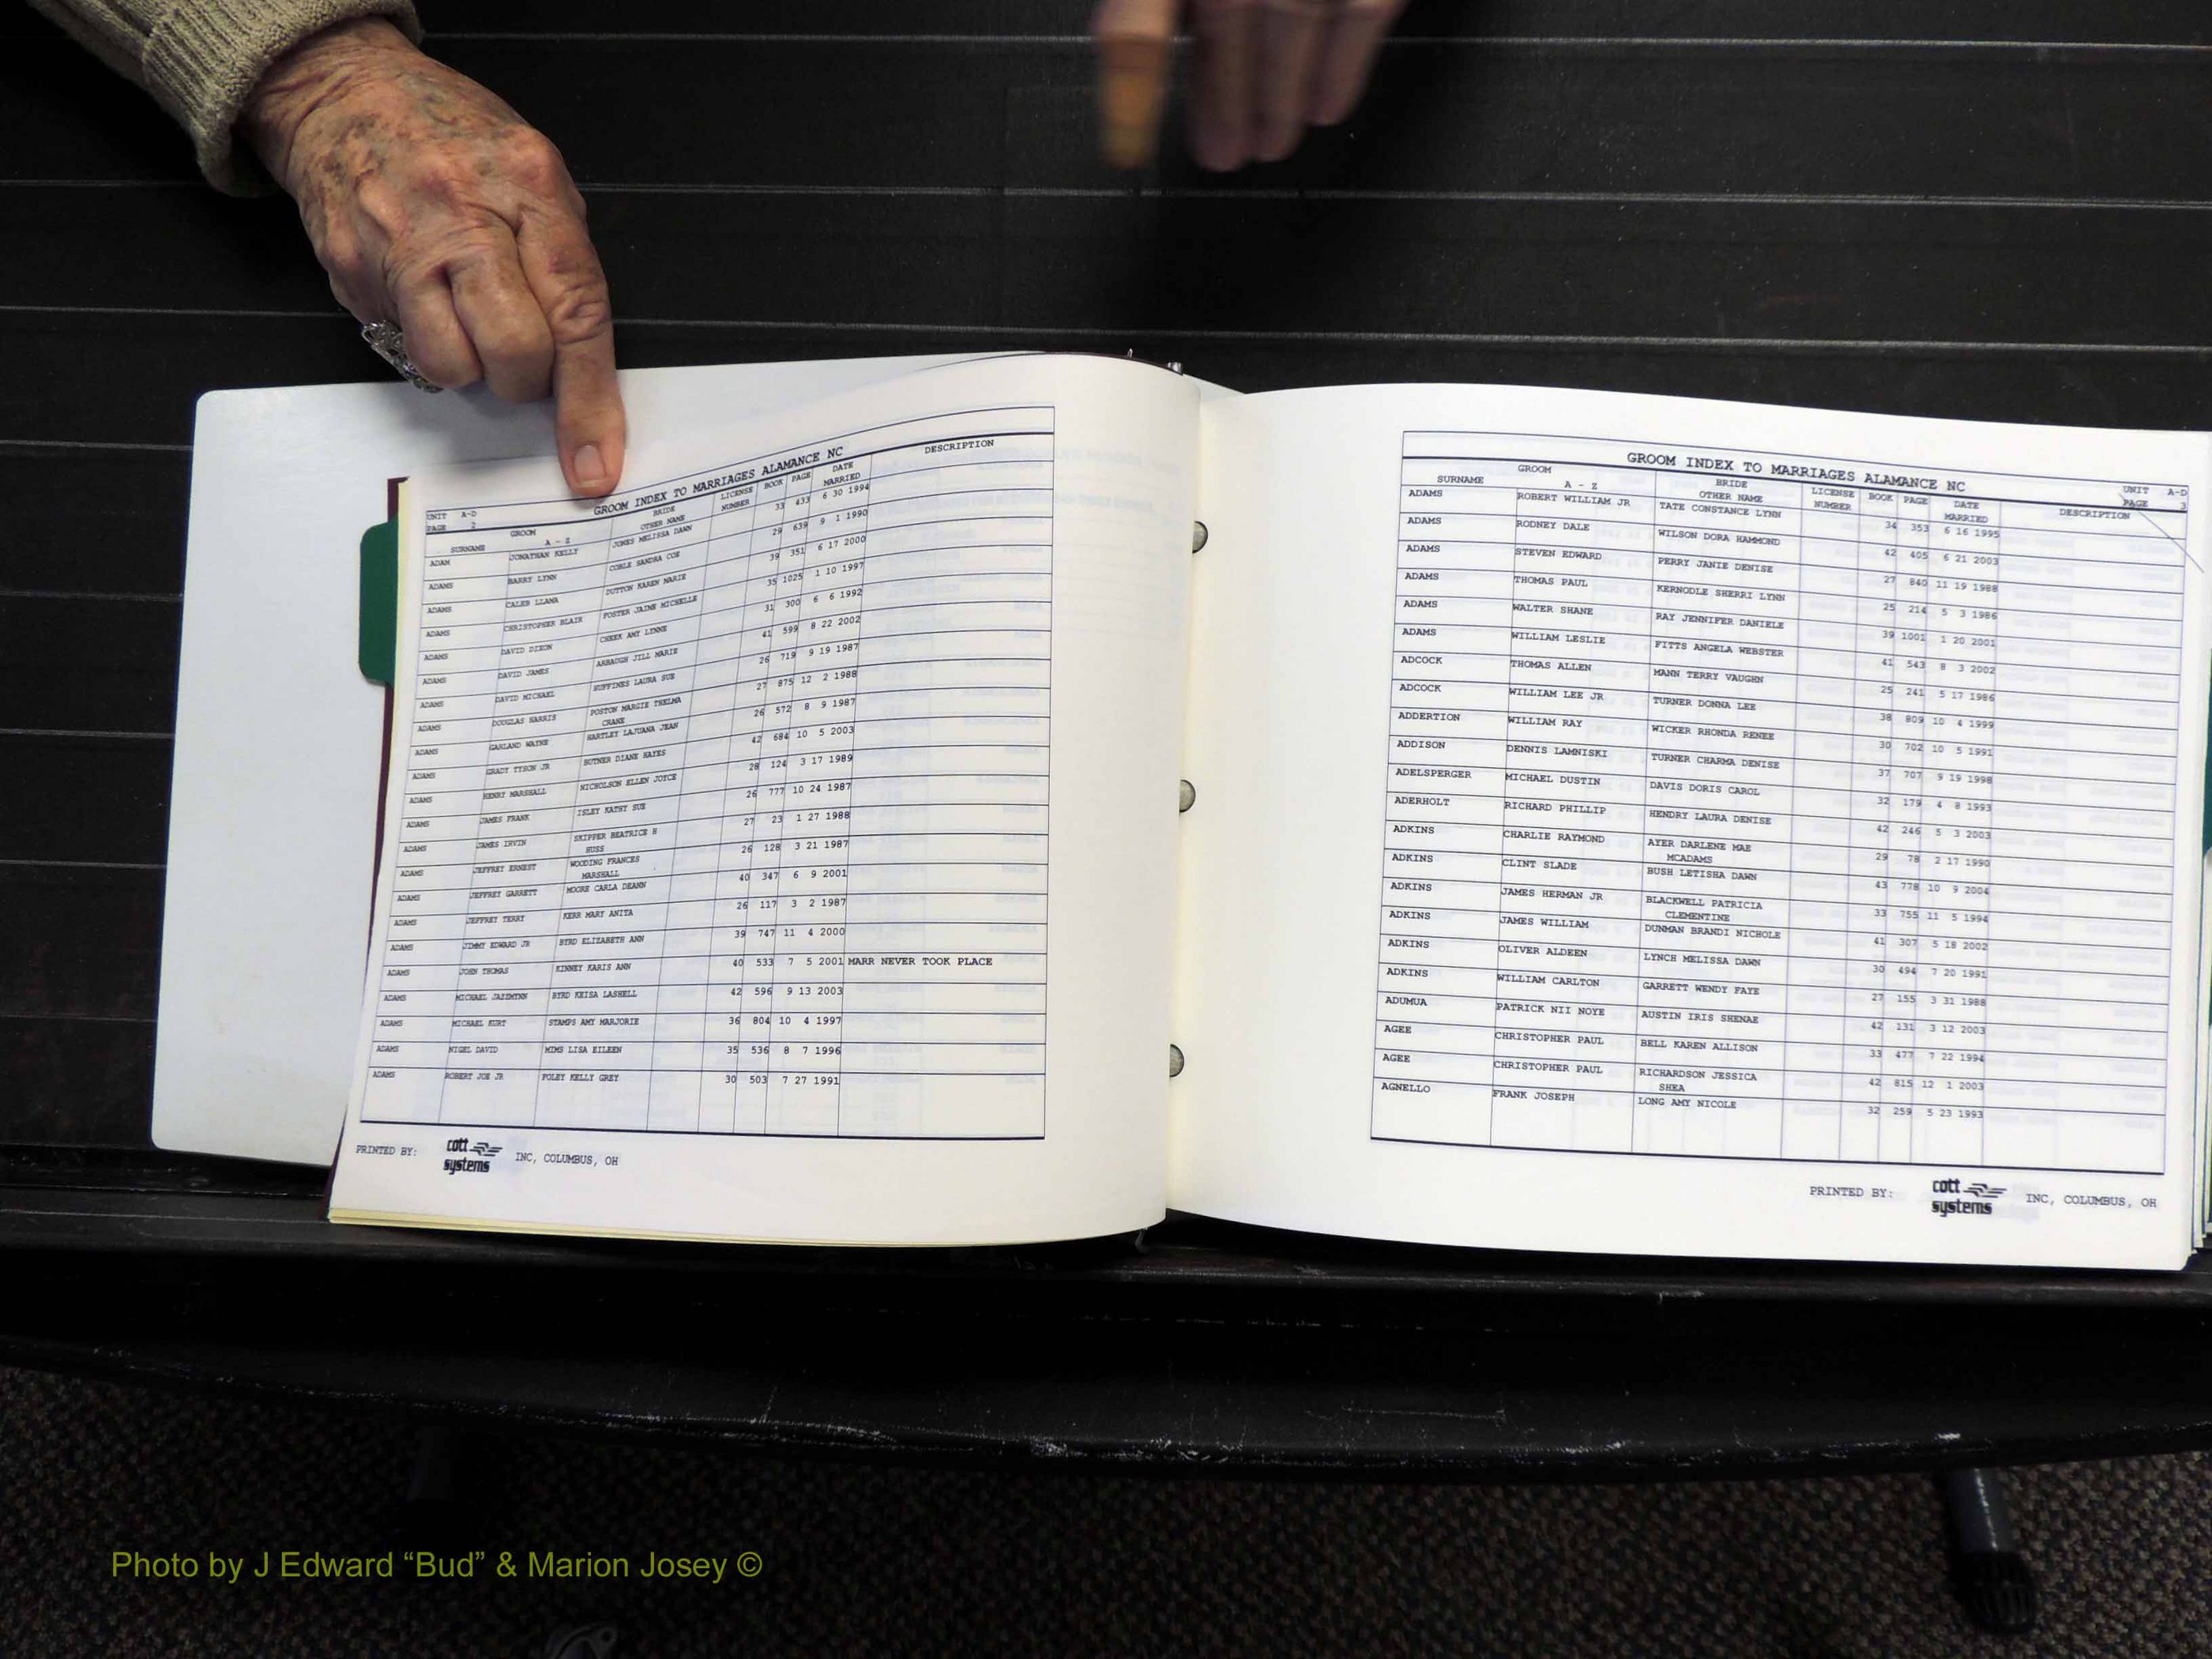 GROOM INDEX TO MARRIAGES ALAMANCE NC
UNIT A-D
PAGE 2
SURNAME GROOM A - Z BRIDE OTHER NAME LICENSE NUMBER BOOK PAGE DATE MARRIED DESCRIPTION
ADAM JONATHAN KELLY JONES MELISSA DAWN 33 433 6 30 1994
ADAMS BARRY LYNN COBLE SANDRA COE 29 639 9 1 1990
ADAMS CALEB LLAMA DUTTON KAREN MARIE 39 351 6 17 2000
ADAMS CHRISTOPHER BLAIR FOSTER JAIME MICHELLE 35 1025 1 10 1997
ADAMS DAVID DIXON CHEEK AMY LYNNE 31 300 6 6 1992
ADAMS DAVID JAMES ARBAUGH JILL MARIE 41 599 8 22 2002
ADAMS DAVID MICHAEL HUFFINES LAURA SUE 26 719 9 19 1987
ADAMS DOUGLAS HARRIS POSTON MARGIE THELMA 27 875 12 2 1988
CRANE
ADAMS GARLAND WAYNE HARTLEY LAJUANA JEAN 26 572 8 9 1987
ADAMS GRADY TYSON JR BUTNER DIANE HAYES 42 684 10 5 2003
ADAMS HENRY MARSHALL NICHOLSON ELLEN JOYCE 28 124 3 17 1989
ADAMS JAMES FRANK ISLEY KATHY SUE 26 777 10 24 1987
ADAMS JAMES IRVIN SKIPPER BEATRICE H 27 23 1 27 1988
HUSS
ADAMS JEFFREY ERNEST WOODING FRANCES 26 128 3 21 1987
MARSHALL
ADAMS JEFFREY GARRETT MOORE CARLA DEANN 40 347 6 9 2001
ADAMS JEFFREY TERRY KERR MARY ANITA 26 117 3 2 1987
ADAMS JIMMY EDWARD JR BYRD ELIZABETH ANN 39 747 11 4 2000
ADAMS JOHN THOMAS KINNEY KARIS ANN 40 533 7 5 2001 MARR NEVER TOOK PLACE
ADAMS MICHAEL JAZEMYNN BYRD KEISA LASHELL 42 596 9 13 2003
ADAMS MICHAEL KURT STAMPS AMY MARJORIE 36 804 10 4 1997
ADAMS NIGEL DAVID MIMS LISA EILEEN 35 536 8 7 1996
ADAMS ROBERT JOE JR FOLEY KELLY GREY 30 503 7 27 1991
PRINTED BY: cott systems INC, COLUMBUS, OH
GROOM INDEX TO MARRIAGES ALAMANCE NC
UNIT A-D
PAGE 3
SURNAME GROOM A - Z BRIDE OTHER NAME LICENSE NUMBER BOOK PAGE DATE MARRIED DESCRIPTION
ADAMS ROBERT WILLIAM JR TATE CONSTANCE LYNN 34 353 6 16 1995
ADAMS RODNEY DALE WILSON DORA HAMMOND 42 405 6 21 2003
ADAMS STEVEN EDWARD PERRY JANIE DENISE 27 840 11 19 1988
ADAMS THOMAS PAUL KERNODLE SHERRI LYNN 25 214 5 3 1986
ADAMS WALTER SHANE RAY JENNIFER DANIELE 39 1001 1 20 2001
ADAMS WILLIAM LESLIE FITTS ANGELA WEBSTER 41 543 8 3 2002
ADCOCK THOMAS ALLEN MANN TERRY VAUGHN 25 241 5 17 1986
ADCOCK WILLIAM LEE JR TURNER DONNA LEE 38 809 10 4 1999
ADDERTION WILLIAM RAY WICKER RHONDA RENEE 30 702 10 5 1991
ADDISON DENNIS LAMNISKI TURNER CHARMA DENISE 37 707 9 19 1998
ADELSPERGER MICHAEL DUSTIN DAVIS DORIS CAROL 32 179 4 8 1993
ADERHOLT RICHARD PHILLIP HENDRY LAURA DENISE 42 246 5 3 2003
ADKINS CHARLIE RAYMOND AYER DARLENE MAE 29 78 2 17 1990
MCADAMS
ADKINS CLINT SLADE BUSH LETISHA DAWN 43 778 10 9 2004
ADKINS JAMES HERMAN JR BLACKWELL PATRICIA 33 755 11 5 1994
CLEMENTINE
ADKINS JAMES WILLIAM DUNMAN BRANDI NICHOLE 41 307 5 18 2002
ADKINS OLIVER ALDEEN LYNCH MELISSA DAWN 30 494 7 20 1991
ADKINS WILLIAM CARLTON GARRETT WENDY FAYE 27 155 3 31 1988
ADUMUA PATRICK NII NOYE AUSTIN IRIS SHENAE 42 131 3 12 2003
AGEE CHRISTOPHER PAUL BELL KAREN ALLISON 33 477 7 22 1994
AGEE CHRISTOPHER PAUL RICHARDSON JESSICA 42 815 12 1 2003
SHEA
AGNELLO FRANK JOSEPH LONG AMY NICOLE 32 259 5 23 1993
PRINTED BY: cott systems INC, COLUMBUS, OH
Photo by J Edward “Bud” & Marion Josey ©